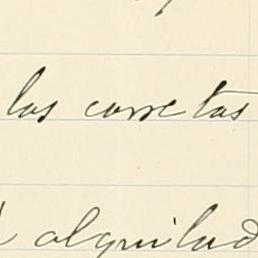 las carretas
alquilad